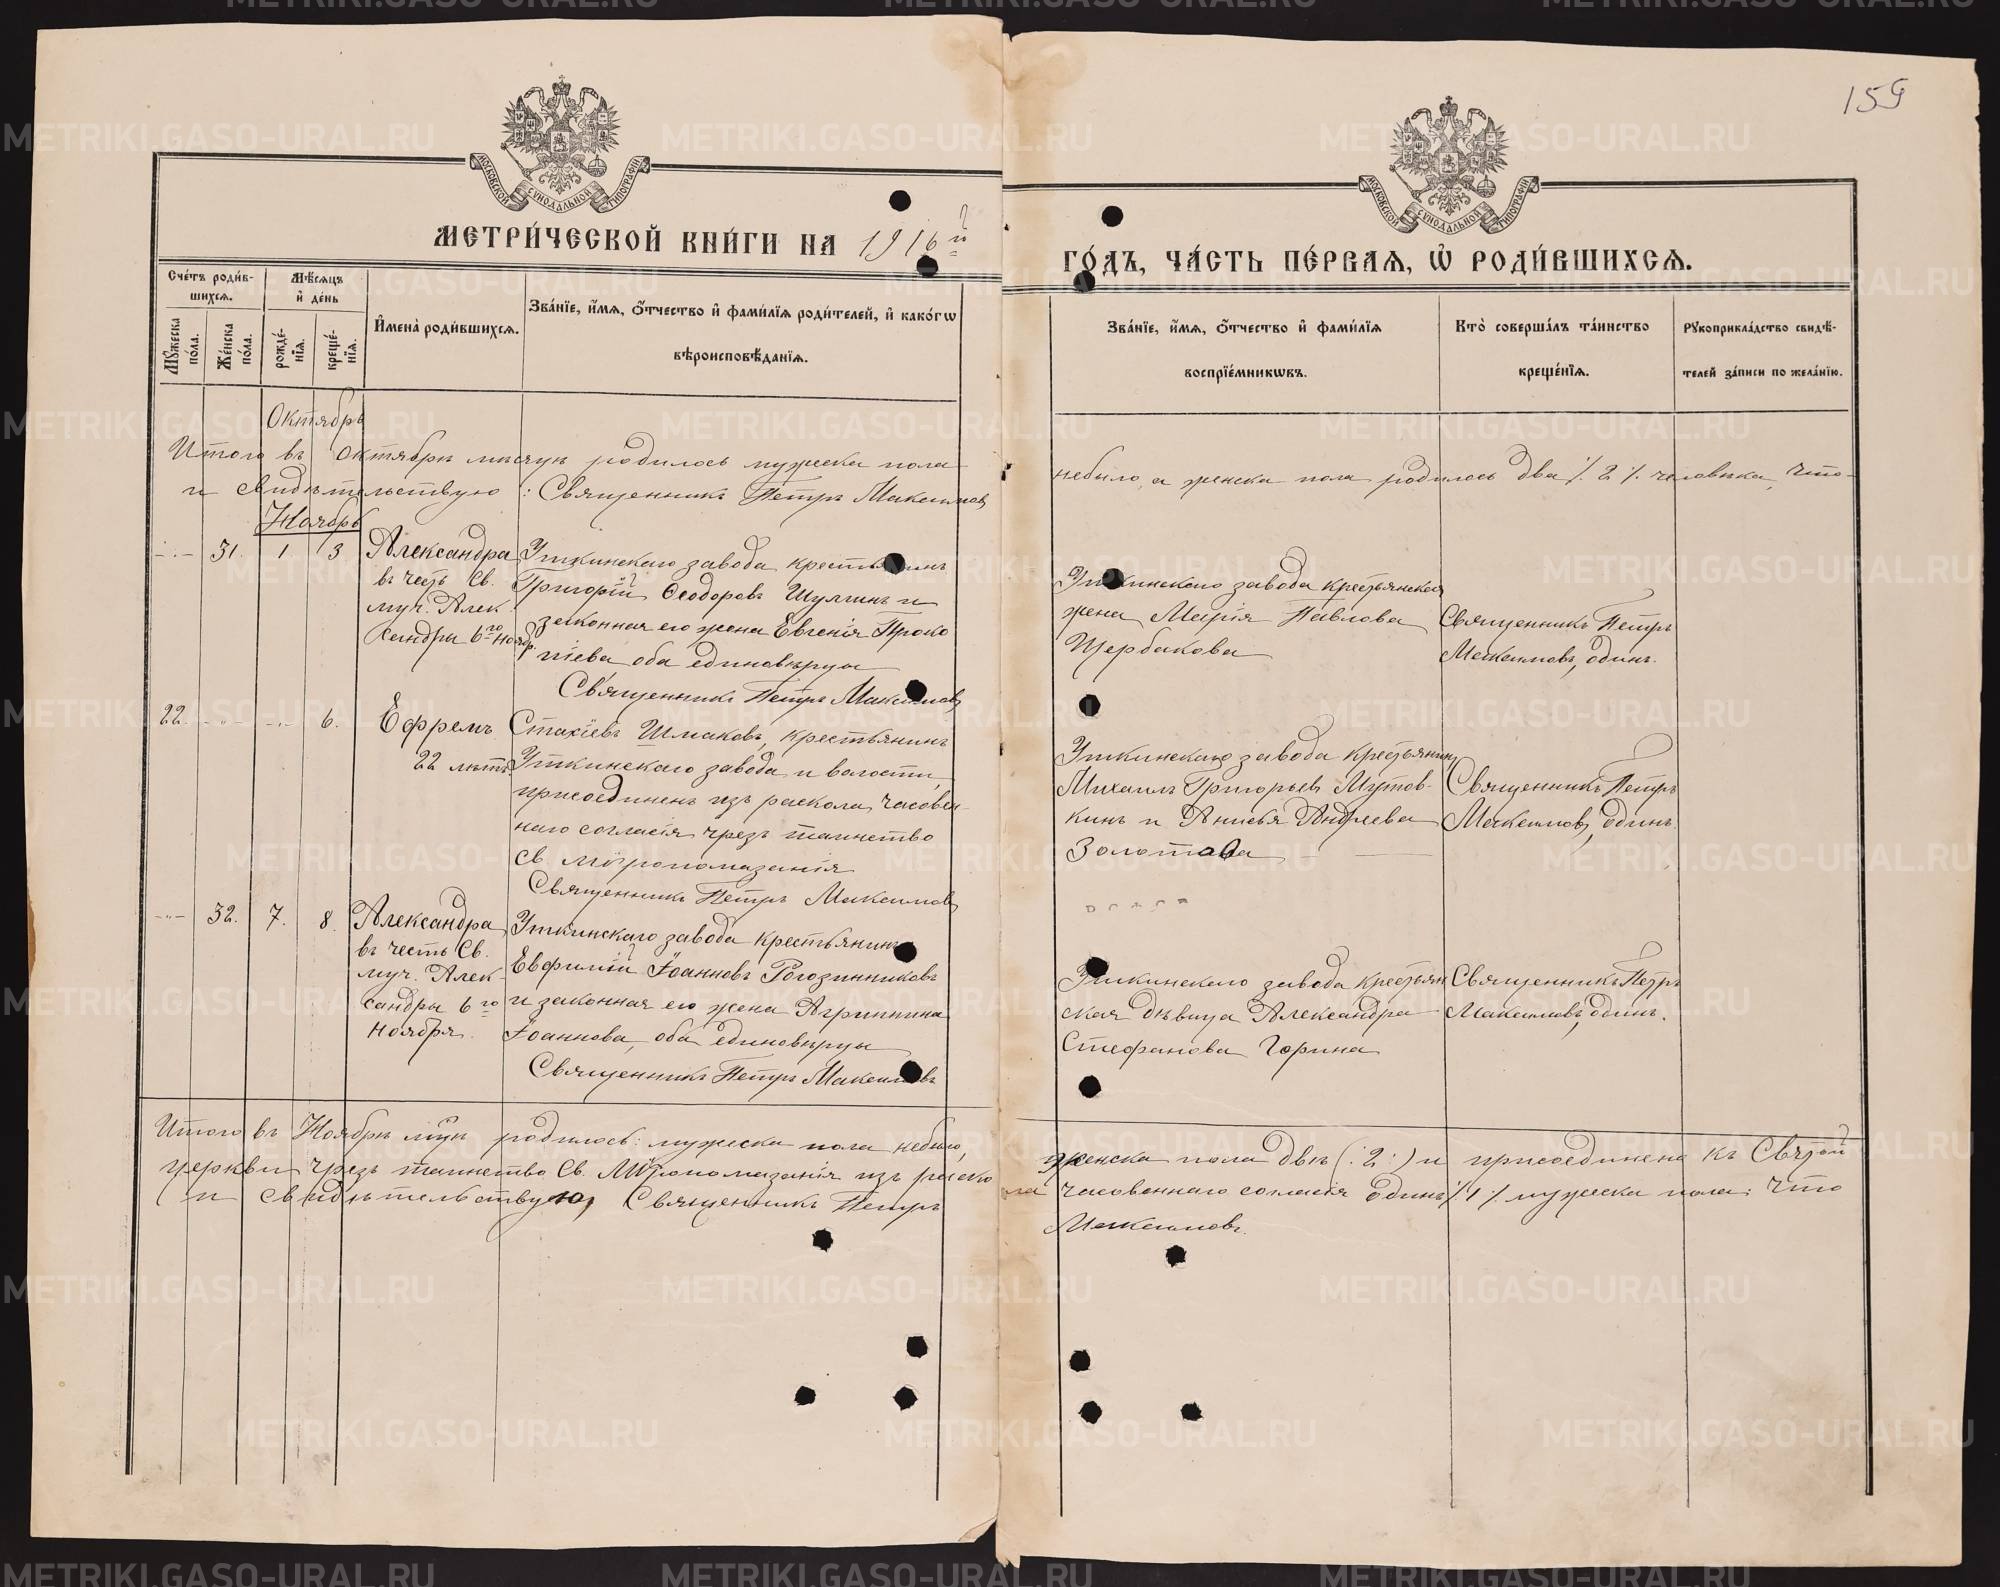 159
МОСКОВСКОЙ СѴНОДАЛЬНОЙ ТИПОГРАФІИ
МОСКОВСКОЙ СѴНОДАЛЬНОЙ ТИПОГРАФІИ
МЕТРИ́ЧЕСКОЙ КНИ́ГИ НА 1916й
ГО́ДЪ, ЧА́СТЬ ПЕ́РВАЯ, Ѡ҆ РОДИ́ВШИХСЯ.
Сче́тъ роди́в-
шихся.
Мꙋ́жеска по́ла.
Же́нска по́ла.
Мѣ́сяцъ
и҆ де́нь
рожде́-нїя.
креще́-нїя.
И҆мена̀ роди́вшихся.
Зва́нїе, и҆́мя, ѻ҆́тчество и҆ фами́лїя роди́телей, и҆ како́гѡ
вѣроисповѣ́данїя.
Зва́нїе, и҆́мя, ѻ҆́тчество и҆ фами́лїя
воспрїе́мникѡвъ.
Кто̀ соверша́лъ та́инство
креще́нїя.
Рꙋкоприкла́дство свидѣ́-
телей за́писи по жела́нїю.
Октябрь
Итого въ Октябрѣ мѣсяцѣ родилось мужеска пола
небыло, а женска пола родилось два /. 2 /. человѣка, Что
и свидѣтельствую: Священникъ Петръ Максимовъ
Ноябрь
-..- 31. 1 3
Александра
въ честь Св.
муч. Алек
сандры 6го нояб.
Уткинскаго завода крестьянинъ
Григорій Ѳеодоровъ Шулгинъ и
законная его жена Евгенія Проко
піева оба единовѣрцы
Священникъ Петръ Максимовъ
Уткинскаго завода крестьянская
жена Марія Павлова
Щербакова
Священникъ Петръ
Максимовъ, одинъ.
22. -..- -..- 6.
Ефремъ
22 лѣтъ
Стахіевъ Шмаковъ, крестьянинъ
Уткинскаго завода и волости,
присоединенъ изъ раскола часовен-
наго согласія чрезъ таинство
св. мѵропомазанія
Священникъ Петръ Максимовъ
Уткинскаго завода крестьянин
Михаилъ Григорьев Мутов-
кинъ и Анисья Андреева
Золотова
Священникъ Петръ
Максимовъ, одинъ.
-..- 32. 7. 8.
Александра
въ честь Св.
муч. Алек-
сандры 6го
ноября.
Уткинскаго завода крестьянинъ
Евфимій Іоанновъ Рогозинниковъ
и законная его жена Агриппина
Іоаннова, оба единовѣрцы
Священникъ Петръ Максимовъ
Уткинскаго завода крестьян
ская дѣвица Александра
Стефанова Горина
Священникъ Петръ
Максимовъ, одинъ.
Итого въ Ноябрѣ мцѣ родилось: мужеска пола небыло,
женска пола двѣ (:2:) и присоединено къ Святой
церкви чрезъ таинство Св. Мѵропомазанія изъ раско
ла часовеннаго согласія одинъ /. 1 /. мужеска пола: Что
и свидѣтельствую, Священникъ Петръ
Максимовъ.
METRIKI.GASO-URAL.RU